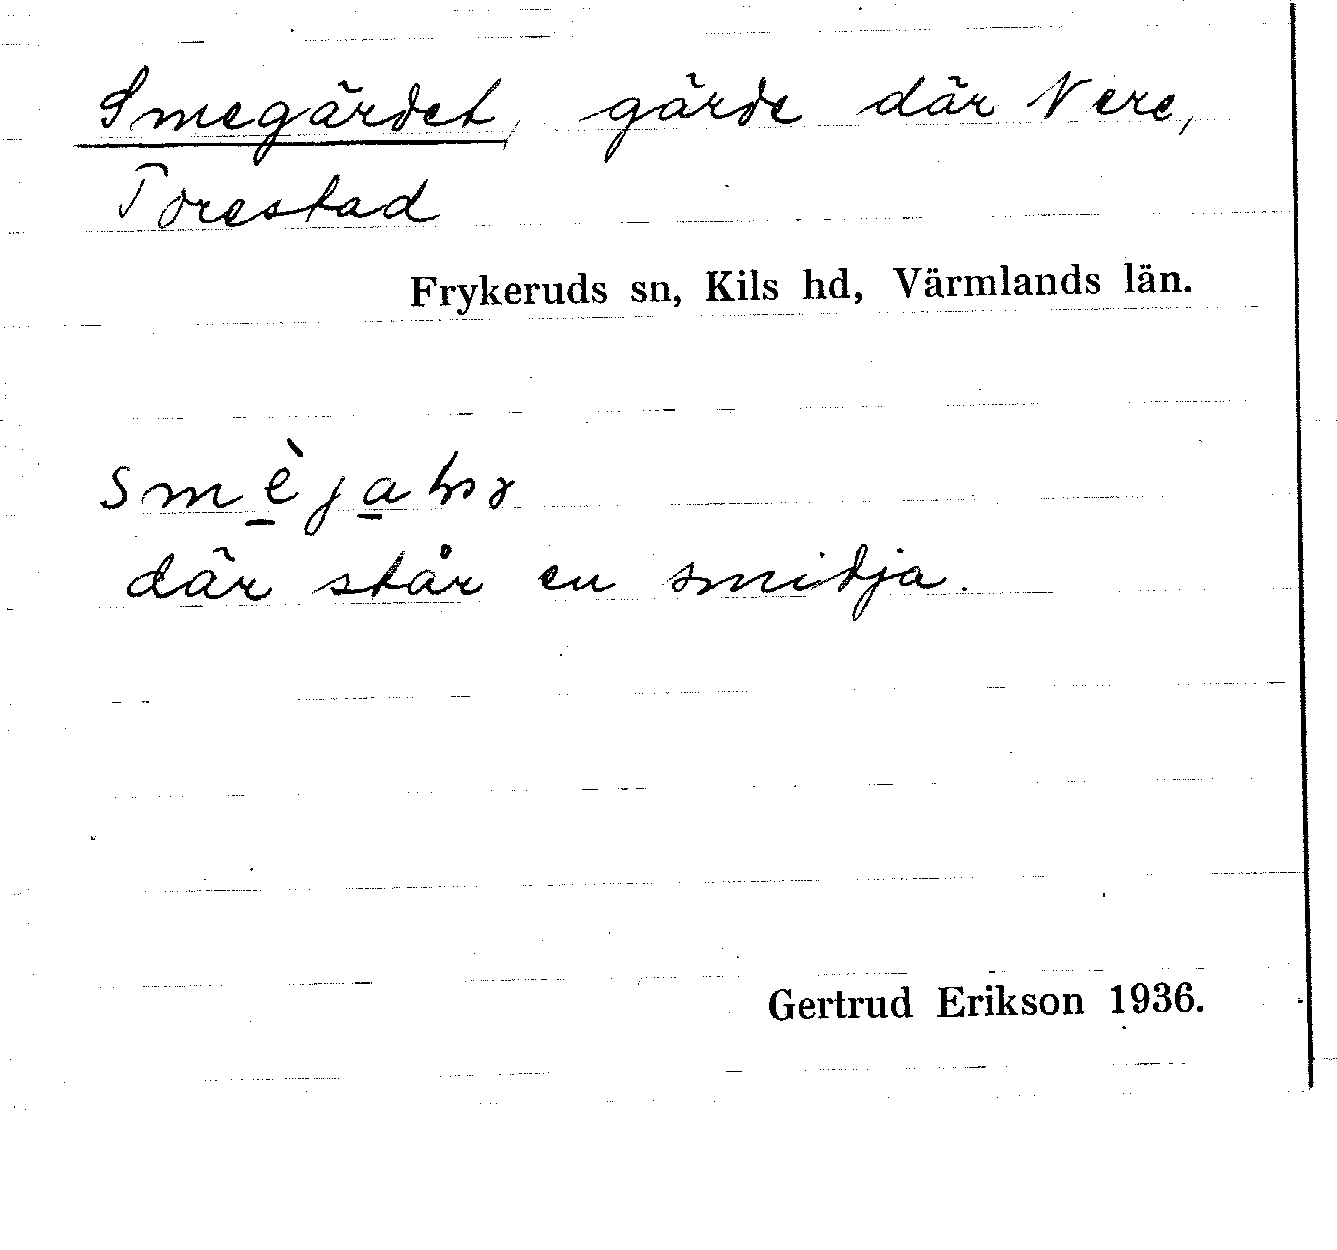 Smegärdet, gärde där Nere,
Torestad
Frykeruds sn, Kils hd, Värmlands län.
där står en smidja.
Gertrud Erikson 1936.